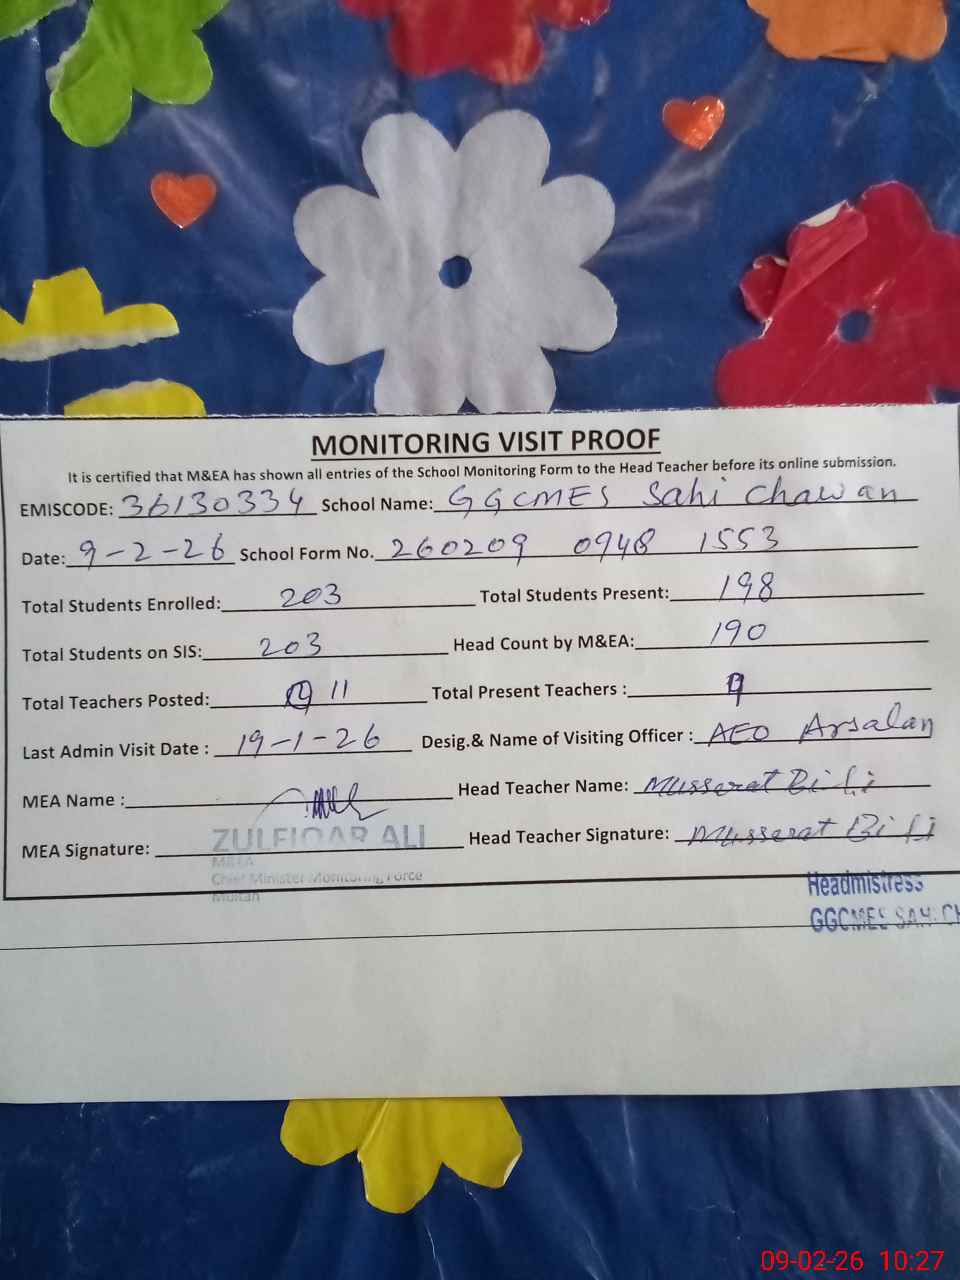 MONITORING VISIT PROOF
It is certified that M&EA has shown all entries of the School Monitoring Form to the Head Teacher before its online submission.
EMISCODE: 36130334 School Name: GGCMES Sahi Chawan
Date: 9-2-26 School Form No. 260209 0948 1553
Total Students Enrolled: 203 Total Students Present: 198
Total Students on SIS: 203 Head Count by M&EA: 190
Total Teachers Posted: 11 Total Present Teachers : 9
Last Admin Visit Date : 19-1-26 Desig.& Name of Visiting Officer : AEO Arsalan
MEA Name : Head Teacher Name: Musserat Bi bi
MEA Signature: Head Teacher Signature: Musserat Bi bi
ZULFIQAR ALI
M&EA
Chief Minister Monitoring Force
Multan
Headmistress
GGCMES SAHI CH
09-02-26 10:27